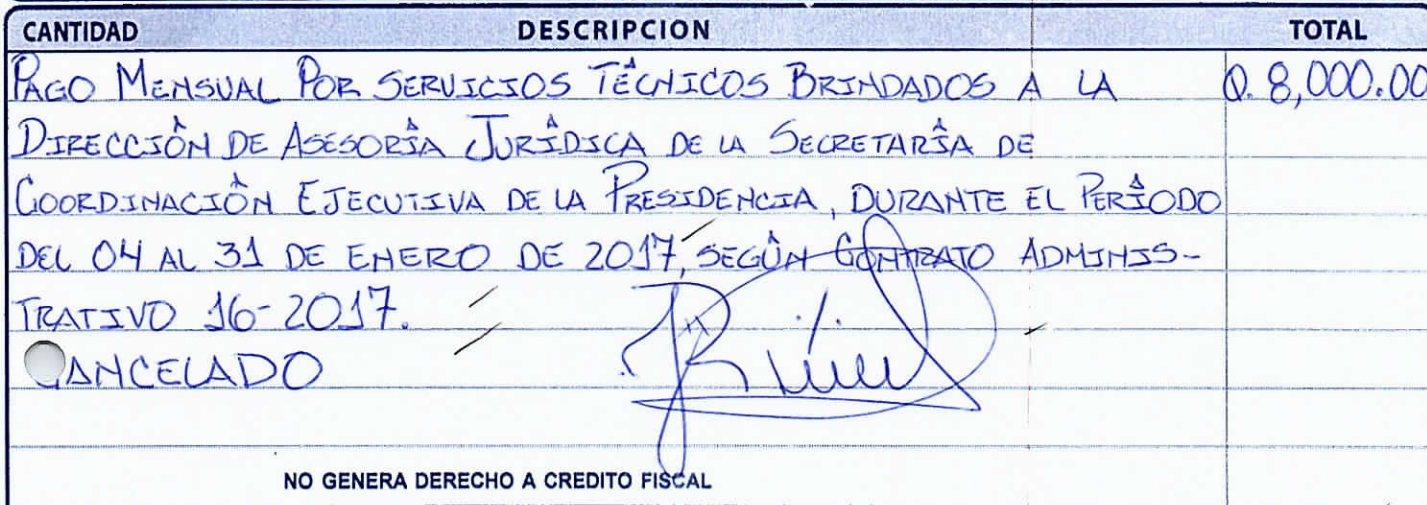 CANTIDAD DESCRIPCION TOTAL
PAGO MENSUAL POR SERVICIOS TÉCNICOS BRINDADOS A LA Q. 8,000.00
DIRECCIÓN DE ASESORÍA JURÍDICA DE LA SECRETARÍA DE
COORDINACIÓN EJECUTIVA DE LA PRESIDENCIA, DURANTE EL PERÍODO
DEL 04 AL 31 DE ENERO DE 2017, SEGÚN CONTRATO ADMINIS-
TRATIVO 16-2017.
CANCELADO
NO GENERA DERECHO A CREDITO FISCAL